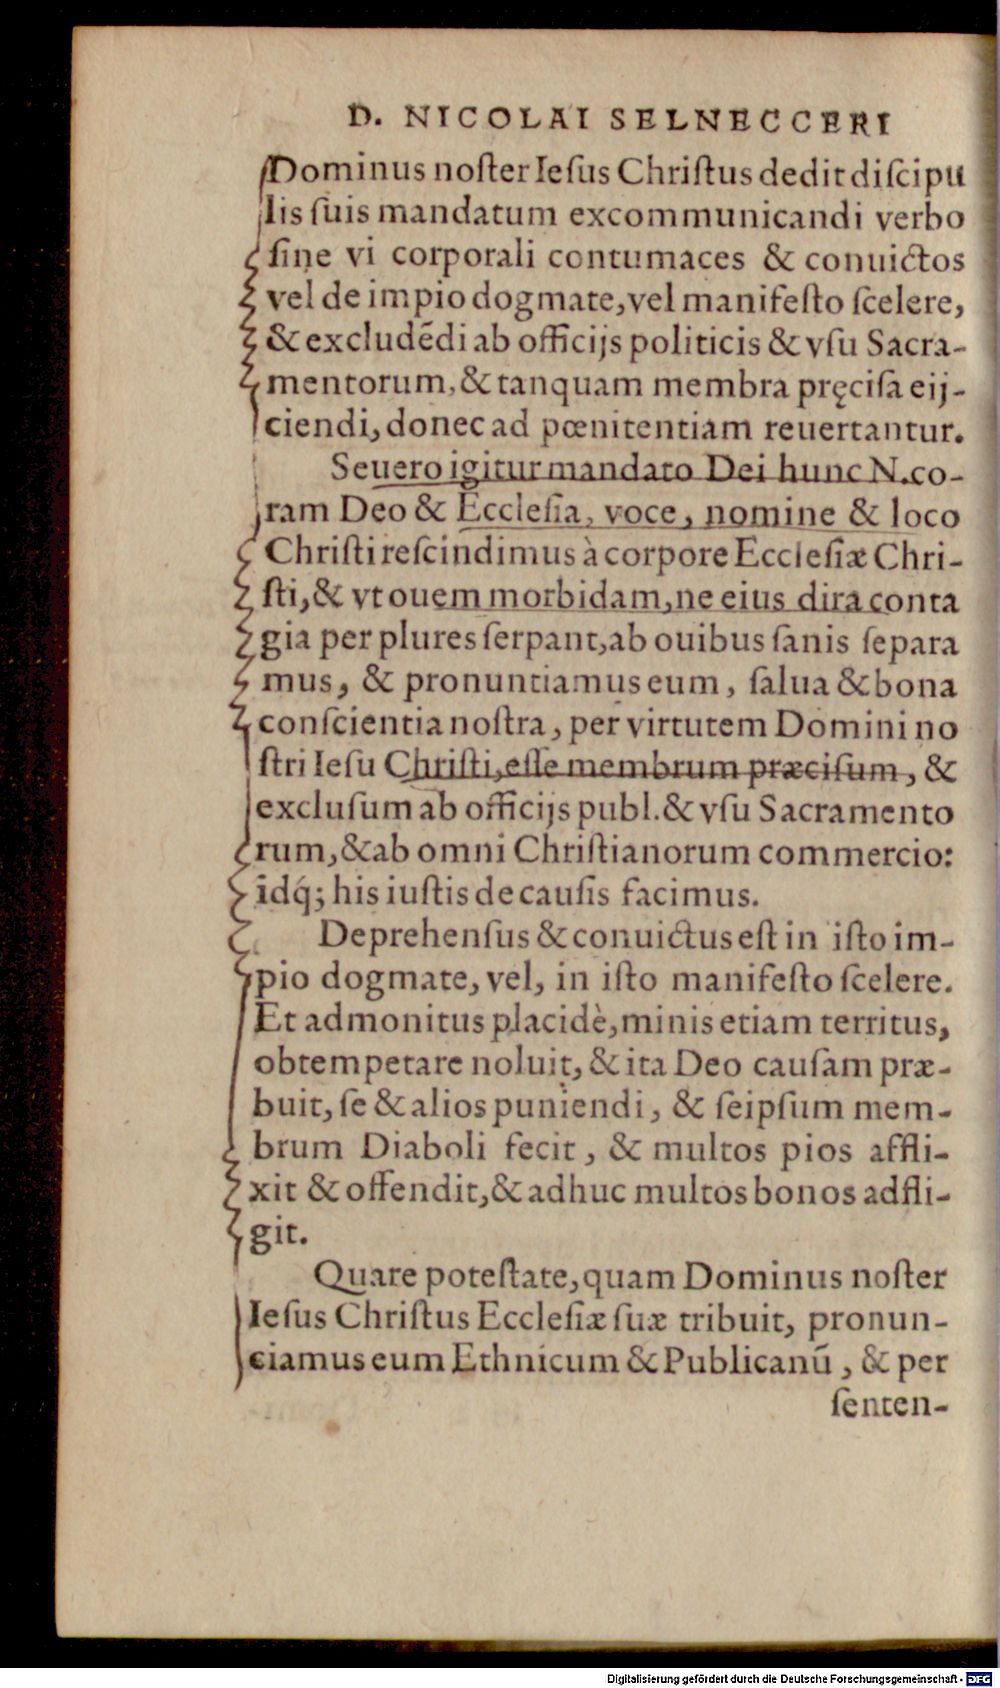 D. NICOLAI SELNECCERI
Dominus noſter Ieſus Chriſtus dedit diſcipu
lis ſuis mandatum excommunicandi verbo
ſine vi corporali contumaces & conuictos
vel de impio dogmate, vel manifeſto ſcelere,
& excludẽdi ab officijs politicis & vſu Sacra-
mentorum, & tanquam membra pręciſa eij-
ciendi, donec ad pœnitentiam reuertantur.
Seuero igitur mandato Dei hunc N. co-
ram Deo & Eccleſia, voce, nomine & loco
Chriſti reſcindimus à corpore Eccleſiæ Chri-
ſti, & vt ouem morbidam, ne eius dira conta
gia per plures ſerpant, ab ouibus ſanis ſepara
mus, & pronuntiamus eum, ſalua & bona
conſcientia noſtra, per virtutem Domini no
ſtri Ieſu Chriſti, eſſe membrum præciſum, &
excluſum ab officijs publ. & vſu Sacramento
rum, & ab omni Chriſtianorum commercio:
idq́; his iuſtis de cauſis facimus.
Deprehenſus & conuictus eſt in iſto im-
pio dogmate, vel, in iſto manifeſto ſcelere.
Et admonitus placidè, minis etiam territus,
obtemperare noluit, & ita Deo cauſam præ-
buit, ſe & alios puniendi, & ſeipſum mem-
brum Diaboli fecit, & multos pios affli-
xit & offendit, & adhuc multos bonos adfli-
git.
Quare poteſtate, quam Dominus noſter
Ieſus Chriſtus Eccleſiæ ſuæ tribuit, pronun-
ciamus eum Ethnicum & Publicanũ, & per
ſenten-
Digitalisierung gefördert durch die Deutsche Forschungsgemeinschaft - DFG